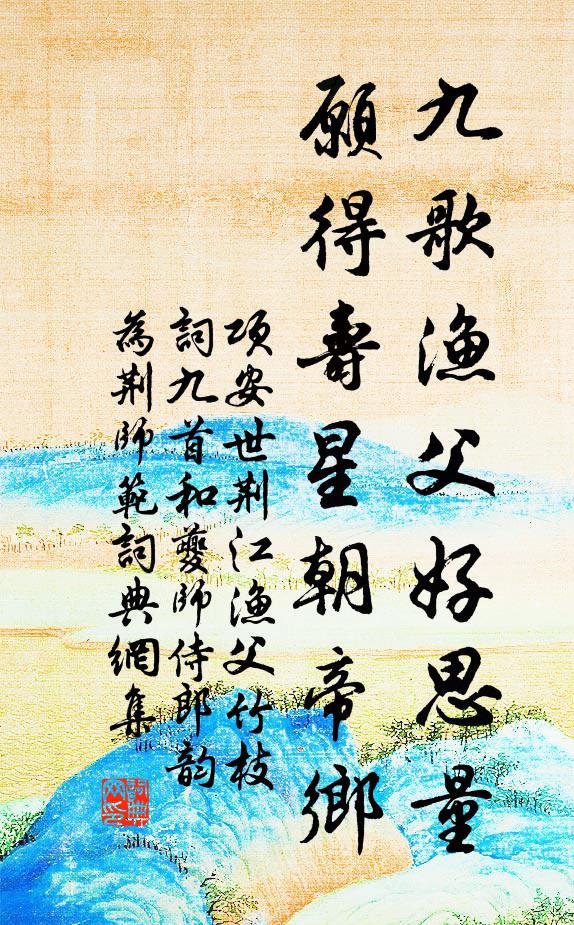 九歌漁父好思量
願得壽星朝帝鄉
項安世荆江漁父竹枝
詞九首和夔師侍郎韵
為荆師範詞典網集